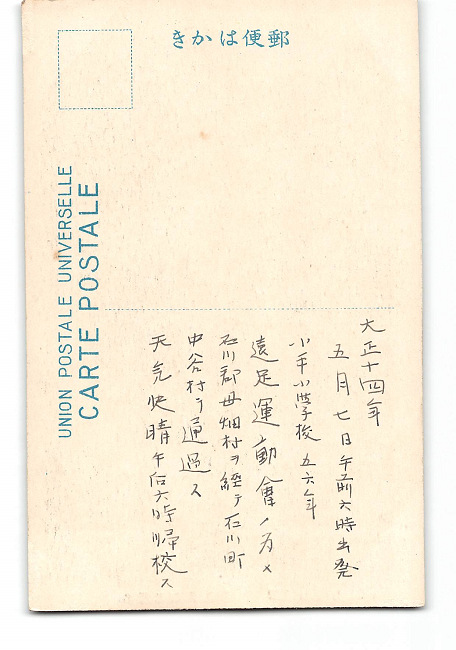 きかは便郵
UNION POSTALE UNIVERSELLE
CARTE POSTALE
大正十四年
五月七日午前六時出発
小平小学校 五六年
遠足運動會ノ為メ
石川郡母畑村ヲ経テ石川町
中谷村ヲ通過ス
天気快晴 午后六時帰校ス